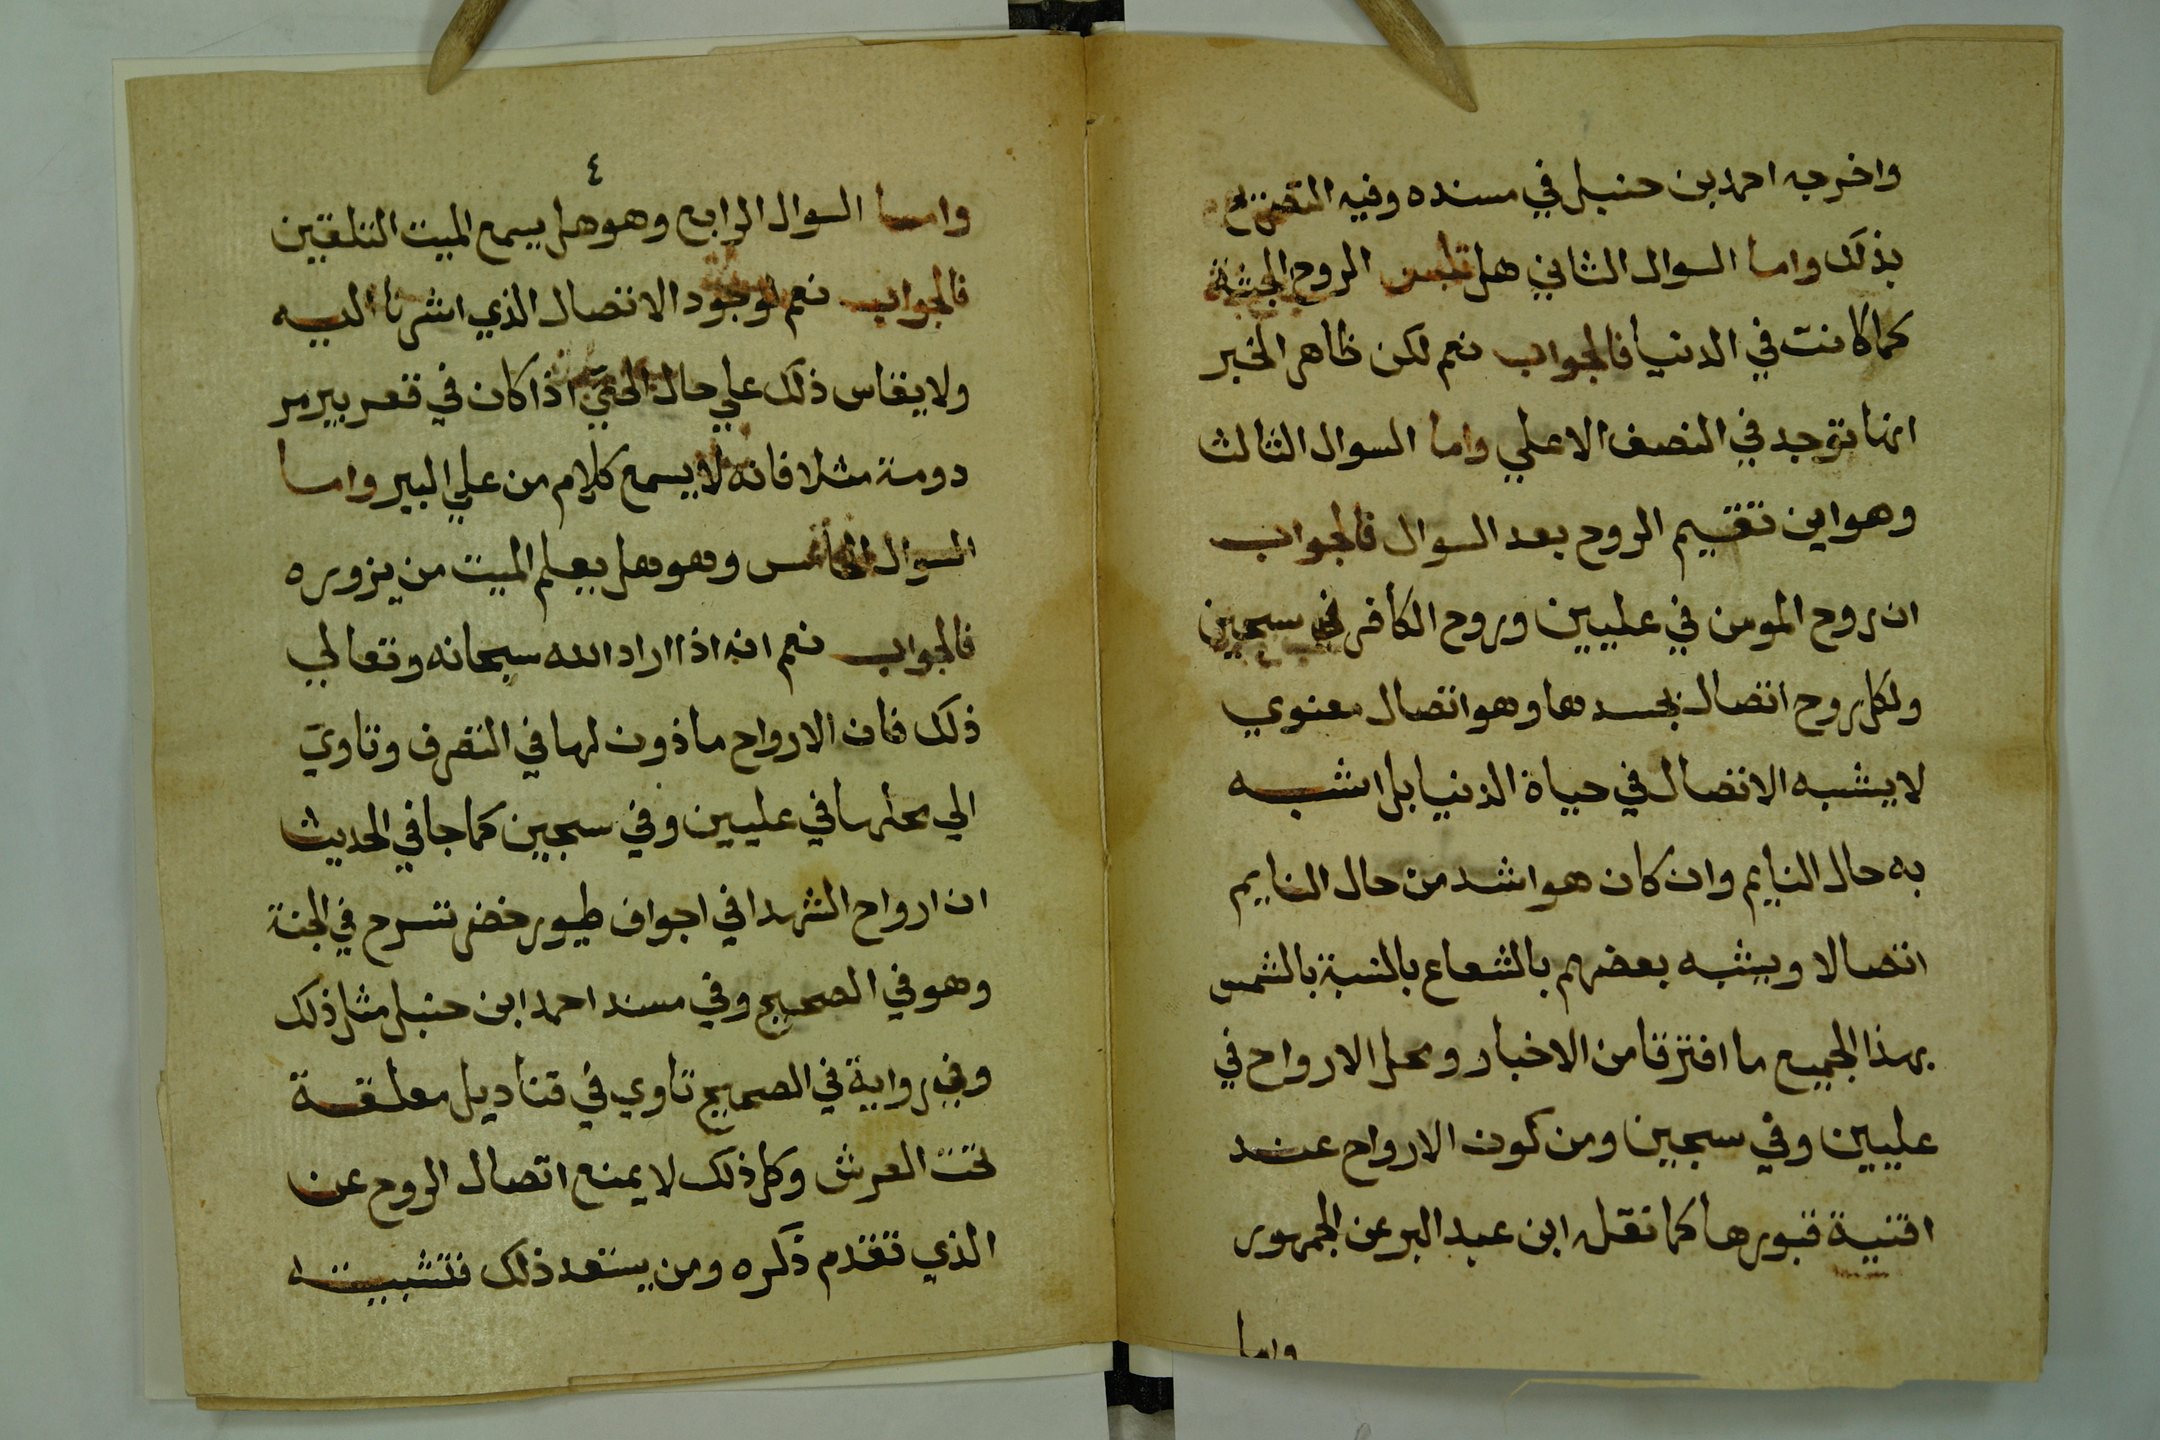 واخرجه احمد بن حنبل في مسنده وفيه التصريح
بذلك واما السوال الثاني هل تلبس الروح الجثة
كما كانت في الدنيا فالجواب نعم لكن ظاهر الخبر
انها توجد في النصف الاعلي واما السوال الثالث
وهو اين تقيم الروح بعد السوال فالجواب
ان روح المومن في عليين وروح الكافر في سجين
ولكل روح اتصال بجسدها وهو اتصال معنوي
لا يشبه الاتصال في حياة الدنيا بل اشبه
به حال النايم وان كان هو اشد من حال النايم
اتصالا ويشبه بعضهم بالشعاع بالنسبة بالشمس
بهذا الجميع ما افترقا من الاخبار ومحل الارواح في
عليين وفي سجين ومن كون الارواح عند
افنية قبورها كما نقل ابن عبد البر عن الجمهور
واما
٤
واما السوال الرابع وهو هل يسمع الميت التلقين
فالجواب نعم لوجود الاتصال الذي اشرنا اليه
ولا يقاس ذلك علي حال الحيّ اذا كان في قعر بير مر
دومة مثلا فانه لا يسمع كلام من علي البير واما
السوال الخامس وهو هل يعلم الميت من يزوره
فالجواب نعم انه اذا اراد الله سبحانه وتعالي
ذلك فان الارواح ماذون لها في التصرف وتاوي
الي محلها في عليين وفي سجين كما جا في الحديث
ان ارواح الشهدا في اجواف طيور خضر تسرح في الجنة
وهو في الصحيح وفي مسند احمد ابن حنبل مثل ذلك
وفي رواية في الصحيح تاوي في قناديل معلقة
تحت العرش وكل ذلك لا يمنع اتصال الروح عن
الذي تقدم ذكره ومن يستعد ذلك فتشبيته